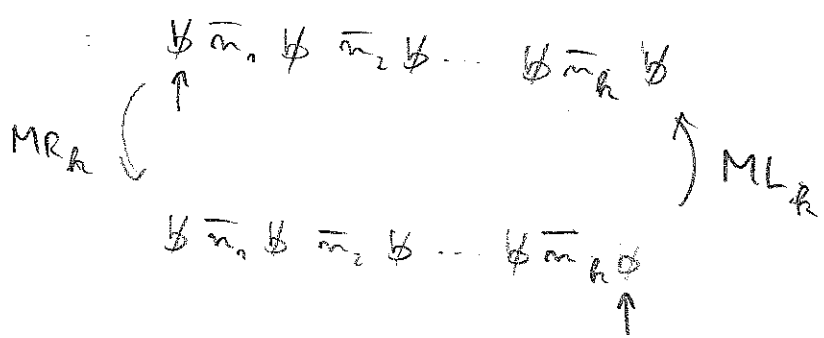 : b̸ n̅₁ b̸ n̅₂ b̸ ... b̸ n̅ₖ b̸
↑
MRₖ MLₖ
b̸ n̅₁ b̸ n̅₂ b̸ ... b̸ n̅ₖ b̸
↑